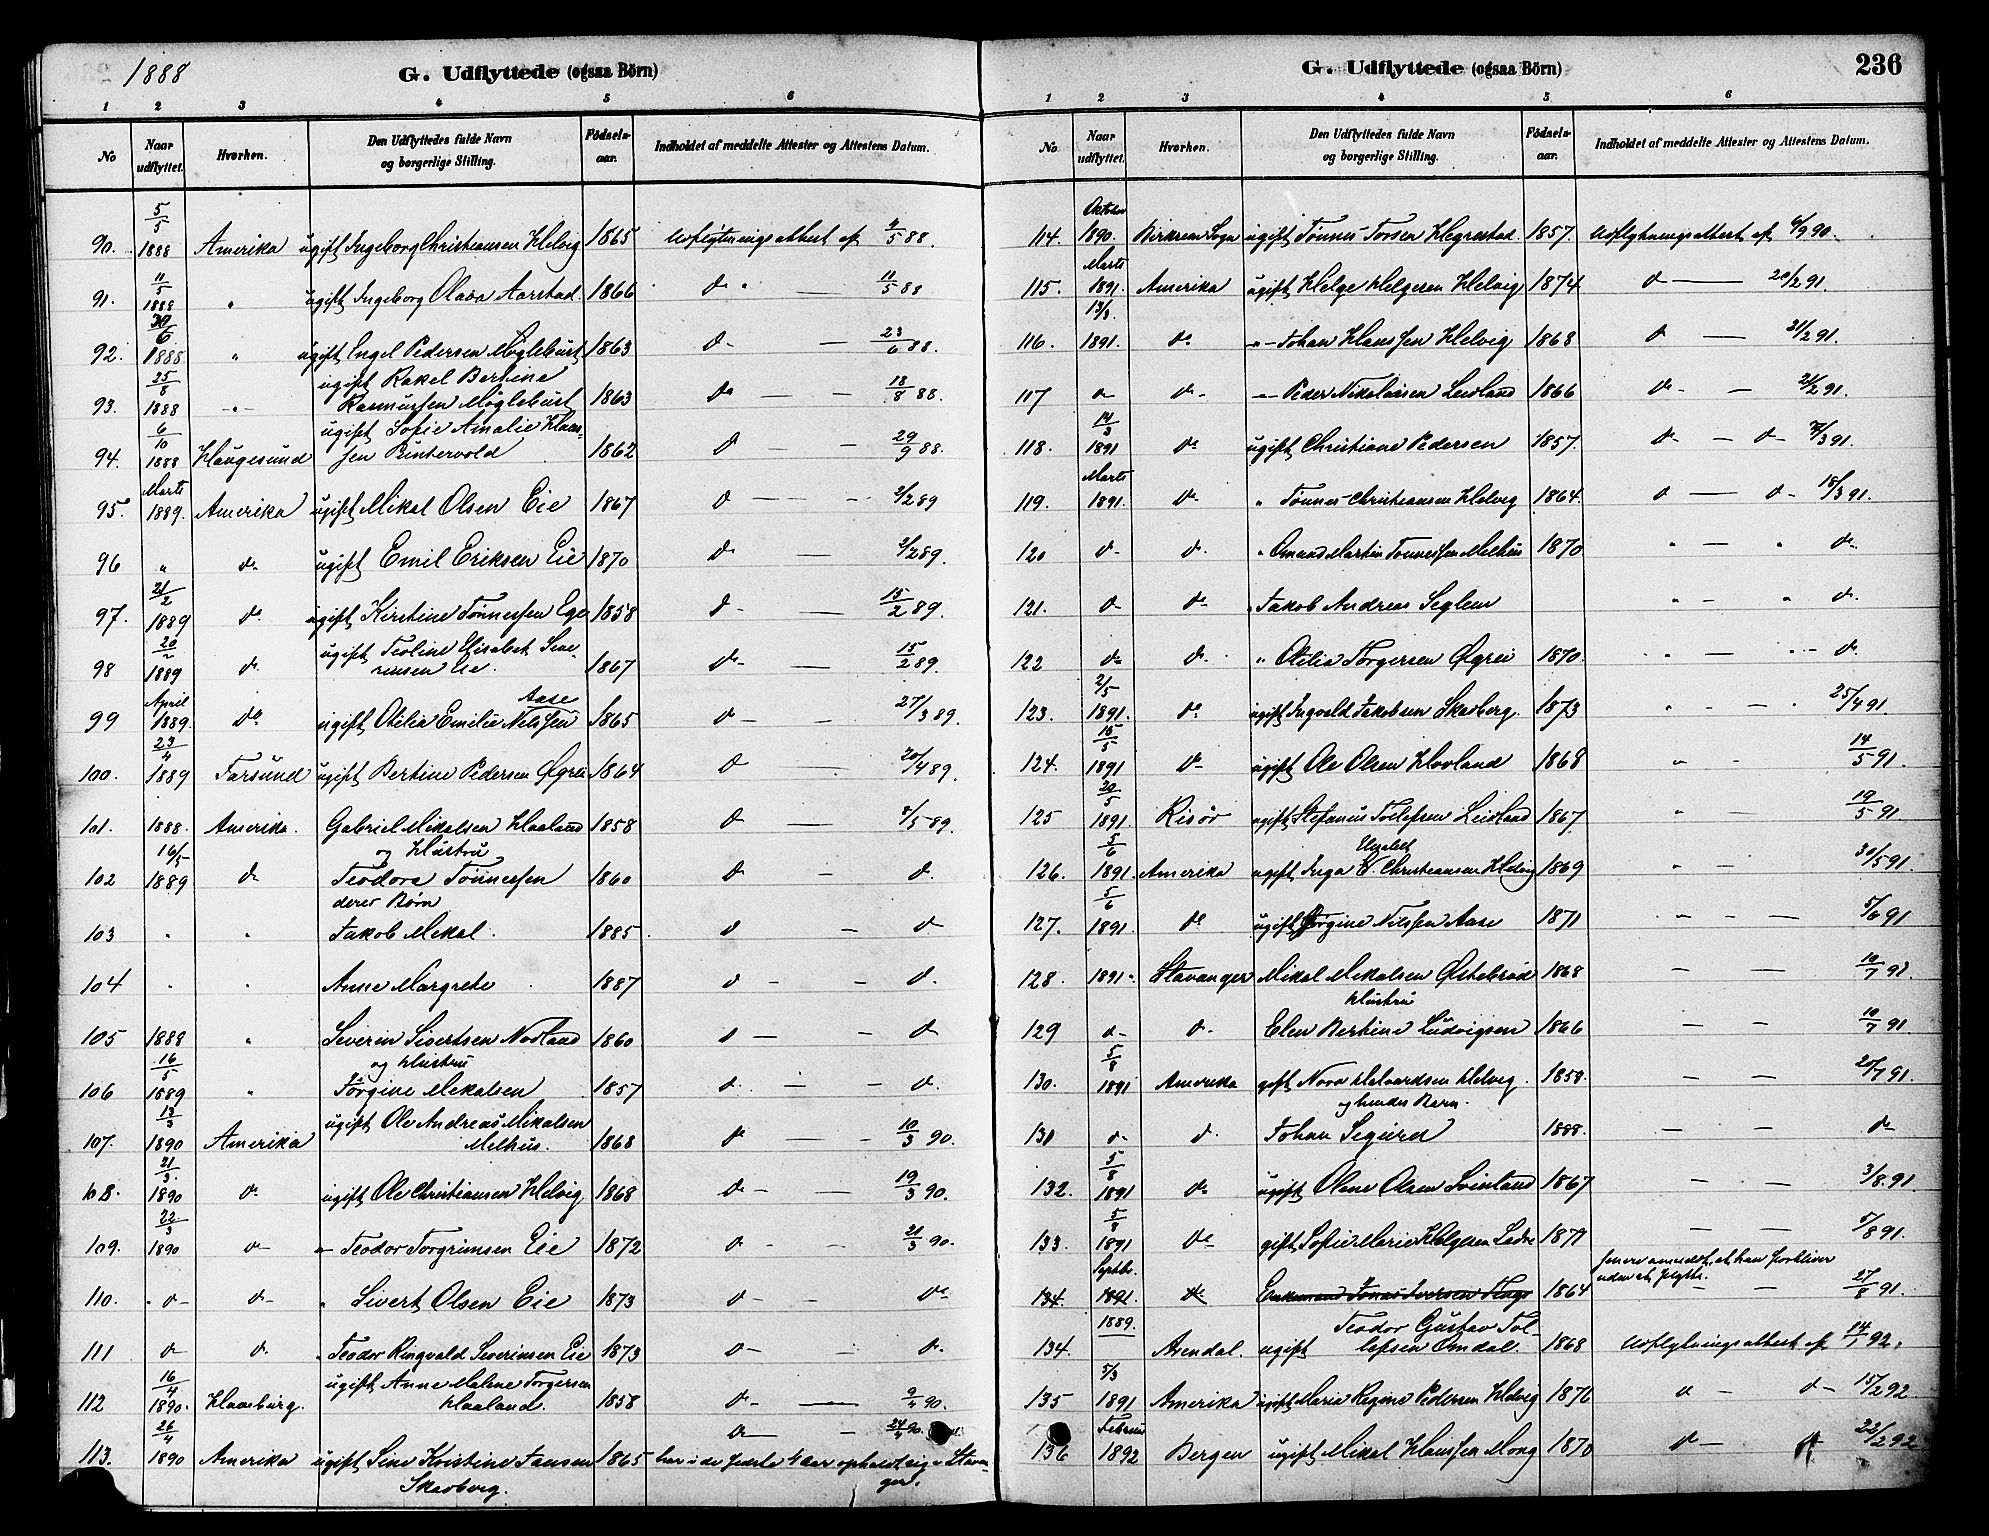 1888
G. Udflyttede (ogsaa Börn)
1 2 3 4 5 6
No Naar udflyttet. Hvorhen. Den Udflyttedes fulde Navn og borgerlige Stilling. Födsels-aar. Indholdet af meddelte Attester og Attestens Datum.
90. 5/5 1888 Amerika ugift Ingeborg Christiansen Helvig 1865 Udflytningsattest af 4/5 88.
91. 11/5 1888 " ugift Ingeborg Olava Aarstad 1866 do " — 11/5 88
92. 30/6 1888 " ugift Engel Pedersen Møglebust 1863 do — — 23/6 88.
93. 25/8 1888 -"- ugift Rakel Bertine
Rasmussen Møglebust 1863 do — — 18/8 88.
94. 6/10 1888 Haugesund ugift Sofie Amalie Hans-
sen Puntervold 1862 do — 29/9 88.
95. Marts 1889. Amerika ugift Mikal Olsen Eie 1867 do — — 2/2 89
96 " do ugift Emil Eriksen Eie 1870 do — 2/2 89.
97. 21/2 1889 do ugift Kirstine Tønnessen Ege 1858 do — — 15/2 89.
98 20/2 1889 do ugift Teoline Elisabet Seve-
rinsen Eie. 1867 do — — 15/2 89.
99 April 1889. do ugift Otelia Emilie Nilssen Aase 1865 do — — 27/3 89.
100. 23/4 1889 Farsund ugift Bertine Pedersen Øgrei 1864 do — 20/4 89.
101. 1888. Amerika. Gabriel Mikalsen Haaland 1858 do — 8/5 89.
og Hustru
102 16/5 1889 do Teodora Tønnessen 1860 do — do
deres Børn
103 " " Jakob Mikal. 1885. do — do
104 " " Anne Margrete 1887 do — — do
105 1888 " Severin Sivertsen Nodland 1860 do — — do
og Hustru
106 16/5 1889 " Torgine Mikalsen 1857 do — — do
107. 13/3 1890 Amerika ugift Ole Andreas Mikalsen
Melhus. 1868 do — — 10/3 90.
108. 21/3 1890 do ugift Ole Christiansen Helvig 1868 do — — 19/3 90.
109. 22/3 1890 do -"- Teodor Torgrimsen Eie 1872 do — — 21/3 90.
110. do do " Sivert Olsen Eie 1873 do — — do
111 do do " Teodor Ringvald Severinsen Eie 1873 do — — do
112 16/4 1890. ugift Anne Malene Torgersen
Haaland. 1858 do — 9/4 90.
113. 26/4 1890 Amerika ugift Sine Kristine Jansen 1865 do — — 24/4 90.
Skadberg. har i de sidste 4 aar opholdt sig i Stavan-
ger.
G. Udflyttede (ogsaa Börn) 236
1 2 3 4 5 6
No. Naar udflyttet. Hvorhen. Den Udflyttedes fulde Navn og borgerlige Stilling. Födsels-aar. Indholdet af meddelte Attester og Attestens Datum.
114. Oktober 1890. Birkrem Sogn ugift Tønnes Tossen Hegrestad. 1857. Udflytningsattest af 6/9 90.
115. Marts 1891. Amerika ugift Helge Helgesen Helvig 1874 do — 20/2 91.
116. 13/3 1891. do -"- Johan Hanssen Helvig 1868 do — 21/2 91.
117 do do -"- Peder Nikolaisen Leidland 1866 do — — 21/2 91.
118. 14/3 1891 do ugift Christiane Pedersen 1857. do — do 7/3 91.
119. Marts 1891. do " Tønnes Christiansen Helvig 1864. do — do 18/3 91.
120 do do " Omund Martin Tønnessen Melhus 1870 " — " do
121. do do " Jakob Andreas Seglem " — " do
122 do do " Otelia Torgersen Øgrei 1870. " — " do
123. 2/5 1891. do ugift Ingvald Jakobsen Skadberg. 1873 " - " — 25/4 91.
124. 15/5 1891 do ugift Ole Olsen Hovland 1868 " - 14/5 91.
125 20/5 1891. Risør ugift Stefanus Tollefsen Leidland 1867. " 19/5 91
126. 5/6 1891. Amerika ugift Inga Elisabet Christiansen Helvig 1869 " — 30/5 91.
127. 5/6 1891. do ugift Torgine Nilssen Aase 1871 " — — — 5/6 91
128. 1891. Stavanger Mikal Mikalsen Østebrød 1868 — — 10/7 91.
Hustru
129 do do Elen Bertine Ludvigsen 1866 — — 10/7 91.
130. 5/8 1891 Amerika gift Nora Halvardsen Helvig. 1858. — — 20/7 91.
og hendes Børn.
131 do do Johan Sigurd 1888. — — do
132. 5/8 1891 do ugift Olene Olsen Svinland 1867 — — 3/8 91.
133. 5/8 1891 do gift Sofie Marie Helgesen 1871 — — 5/8 91.
134. Septbr. 1891 do Enkemand Jonas Iversen 1864 Senere anmeldt, at han forbliver
uden at flytte. — 27/8 91.
134. 1889. Arendal. ugift Teodor Gustav Tol-
lefsen Omdal. 1868 Udflytningsattest af 14/1 92.
135 5/3 1891 Amerika ugift Maria Regine Pedersen Helvig 1876 do — do 15/2 92.
136 Februar 1892 Bergen ugift Mikal Hanssen Mong 1870 do — do 22/2 92